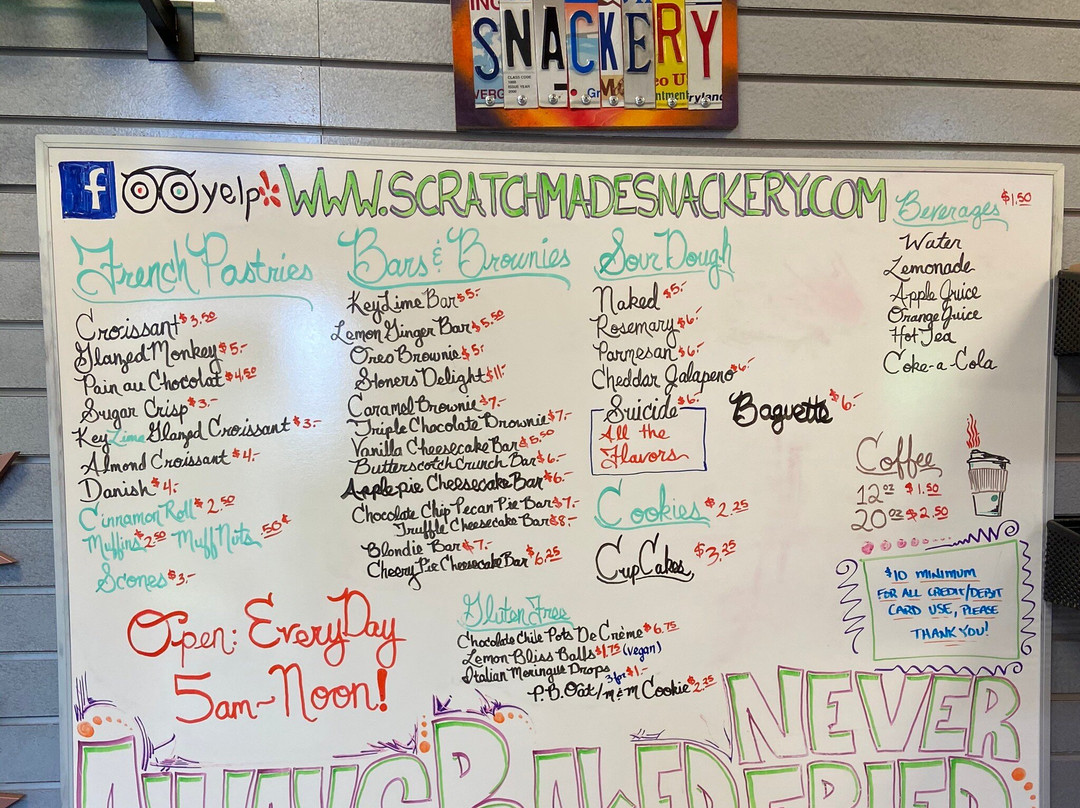 SNACKERY
f yelp WWW.SCRATCHMADESNACKERY.COM
French Pastries
Croissant $3.50
Glazed Monkey $5.-
Pain au Chocolat $4.50
Sugar Crisp $3.-
Key Lime Glazed Croissant $3.-
Almond Croissant $4.-
Danish $4.-
Cinnamon Roll $2.50
Muffins $2.50 Muff Nuts .50¢
Scones $3.-
Bars & Brownies
Key Lime Bar $5.-
Lemon Ginger Bar $5.50
Oreo Brownie $5.-
Stoners Delight $11.-
Caramel Brownie $7.-
Triple Chocolate Brownie $7.-
Vanilla Cheesecake Bar $5.50
Butterscotch Crunch Bar $6.-
Apple pie Cheesecake Bar $6.-
Chocolate Chip Pecan Pie Bar $7.-
Truffle Cheesecake Bar $8.-
Blondie Bar $7.-
Cheery Pie Cheesecake Bar $6.25
Sour Dough
Naked $5.-
Rosemary $6.-
Parmesan $6.-
Cheddar Jalapeno $6.-
Suicide $6.-
All the
Flavors
Baguette $6.-
Cookies $2.25
CupCakes $3.25
Beverages $1.50
Water
Lemonade
Apple Juice
Orange Juice
Hot Tea
Coke-a-Cola
Coffee
12oz $1.50
20oz $2.50
$10 MINIMUM
FOR ALL CREDIT/DEBIT
CARD USE, PLEASE
THANK YOU!
Open: EveryDay
5am~Noon!
Gluten Free
Chocolate Chile Pots De Crème $6.75
Lemon Bliss Balls $1.75 (vegan)
Italian Meringue Drops 3 for $1.-
P.B. Oat/m&m Cookie $2.25
ALWAYS BAKED NEVER
FRIED